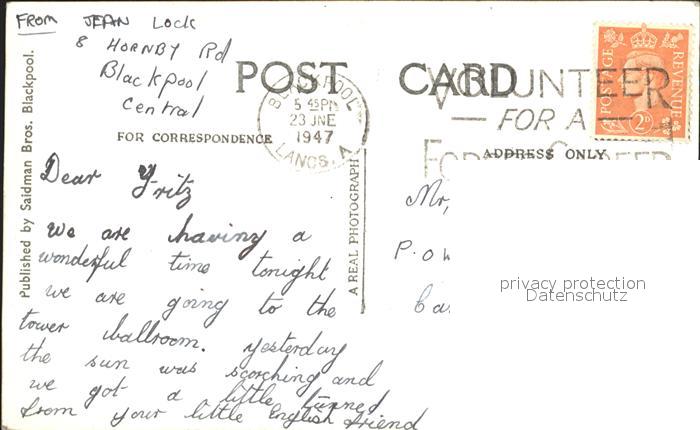 FROM JEAN Lock
8 HORNBY Rd
Blackpool
Central
POST CARD
FOR CORRESPONDENCE
ADDRESS ONLY
BLACKPOOL
5 45PM
23 JNE
1947
LANCS. A
VOLUNTEER
FOR A
POSTAGE
REVENUE
2D
Published by Saidman Bros. Blackpool.
A REAL PHOTOGRAPH
Dear Fritz
We are having a
wonderful time tonight
we are going to the
tower ballroom. yesterday
the sun was scorching and
we got a little tanned
from your little English friend
Mr,
P.O
privacy protection
Datenschutz